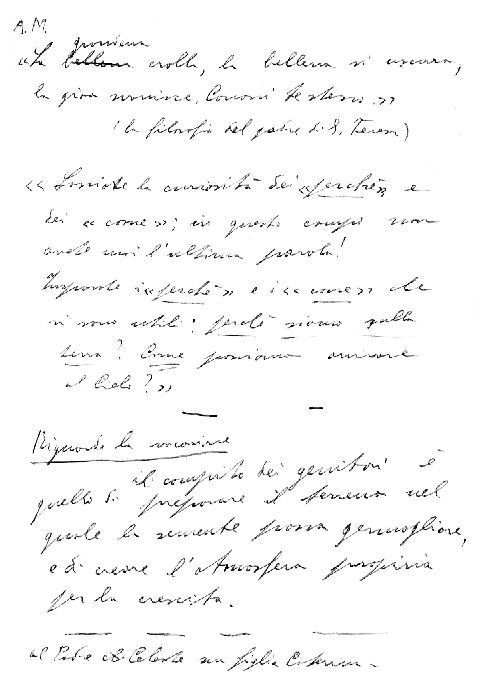 A.M.
giovinezza
«La bellezza crolla, la bellezza si oscura,
la gioia Conosci te stesso.»
(la filosofia del padre di S. Teresa)
« Lasciate la curiosità dei «perché» e
dei « come»; in questo campo non
avete mai l'ultima parola!
i «perché» e i «come» che
vi sono utili: perché siamo sulla
terra? Come possiamo arrivare
al Cielo?»
Riguardo la vocazione
il compito dei genitori è
quello di preparare il terreno nel
quale la semente possa germogliare,
e di creare l'atmosfera propizia
per la crescita.
al Celeste figlia